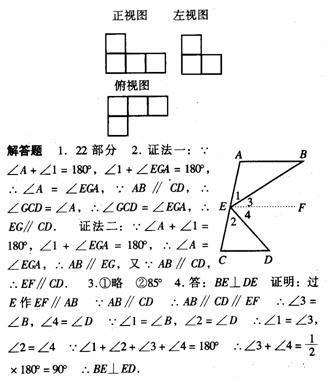 正视图 左视图
俯视图
解答题 1. 22 部分 2. 证法一：∵
∠A + ∠1 = 180°, ∠1 + ∠EGA = 180°,
∴ ∠A = ∠EGA, ∵ AB ∥ CD, ∴
∠GCD = ∠A, ∴ ∠GCD = ∠EGA, ∴
EG∥CD. 证法二：∵ ∠A + ∠1 =
180°, ∠1 + ∠EGA = 180°, ∴ ∠A =
∠EGA, ∴ AB∥EG, 又∵ AB∥CD,
∴ EF∥CD. 3.①略 ②85° 4. 答：BE⊥DE 证明：过
E 作 EF∥AB ∵ AB∥CD ∴ AB∥CD∥EF ∴ ∠3 =
∠B, ∠4 = ∠D ∵ ∠1 = ∠B, ∠2 = ∠D ∴ ∠1 = ∠3,
∠2 = ∠4 ∵ ∠1 + ∠2 + ∠3 + ∠4 = 180° ∴ ∠3 + ∠4 = 1/2
× 180° = 90° ∴ BE⊥ED.
A B
1
3
E F
2 4
C D